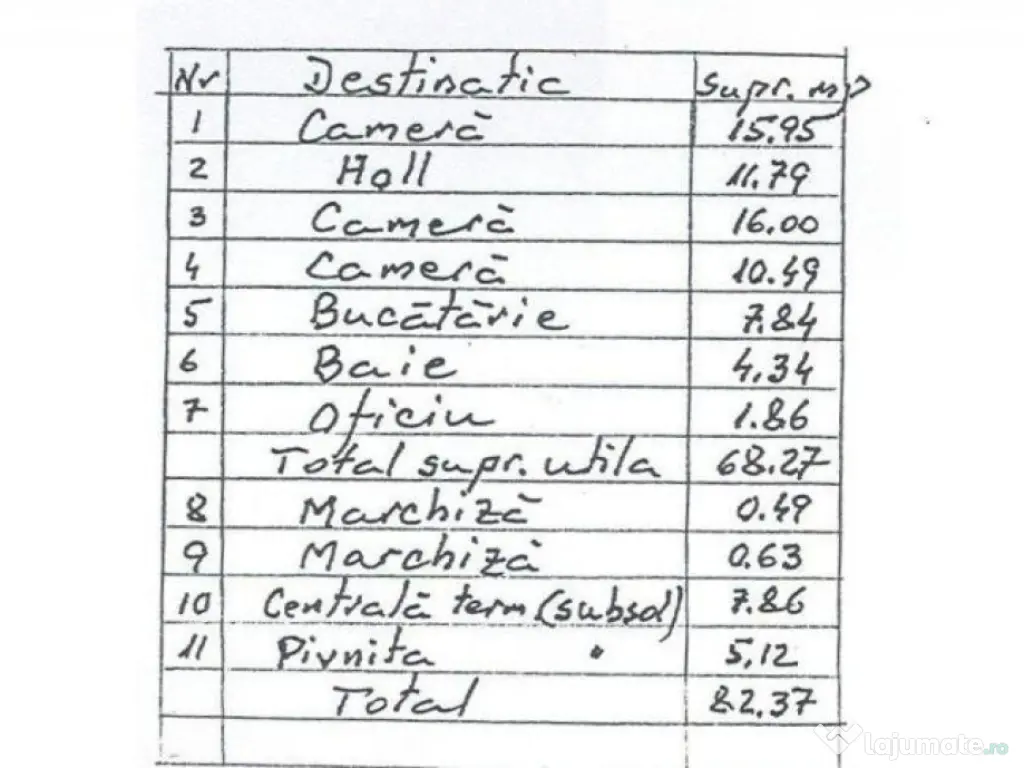 Nr Destinatie Supr. mp
1 Cameră 15.95
2 Holl 11.79
3 Cameră 16.00
4 Cameră 10.49
5 Bucătărie 7.84
6 Baie 4.34
7 Oficiu 1.86
Total supr. utila 68.27
8 Marchiză 0.49
9 Marchiză 0.63
10 Centrală term (subsol) 7.86
11 Pivnita " 5,12
Total 82.37
lajumate.ro